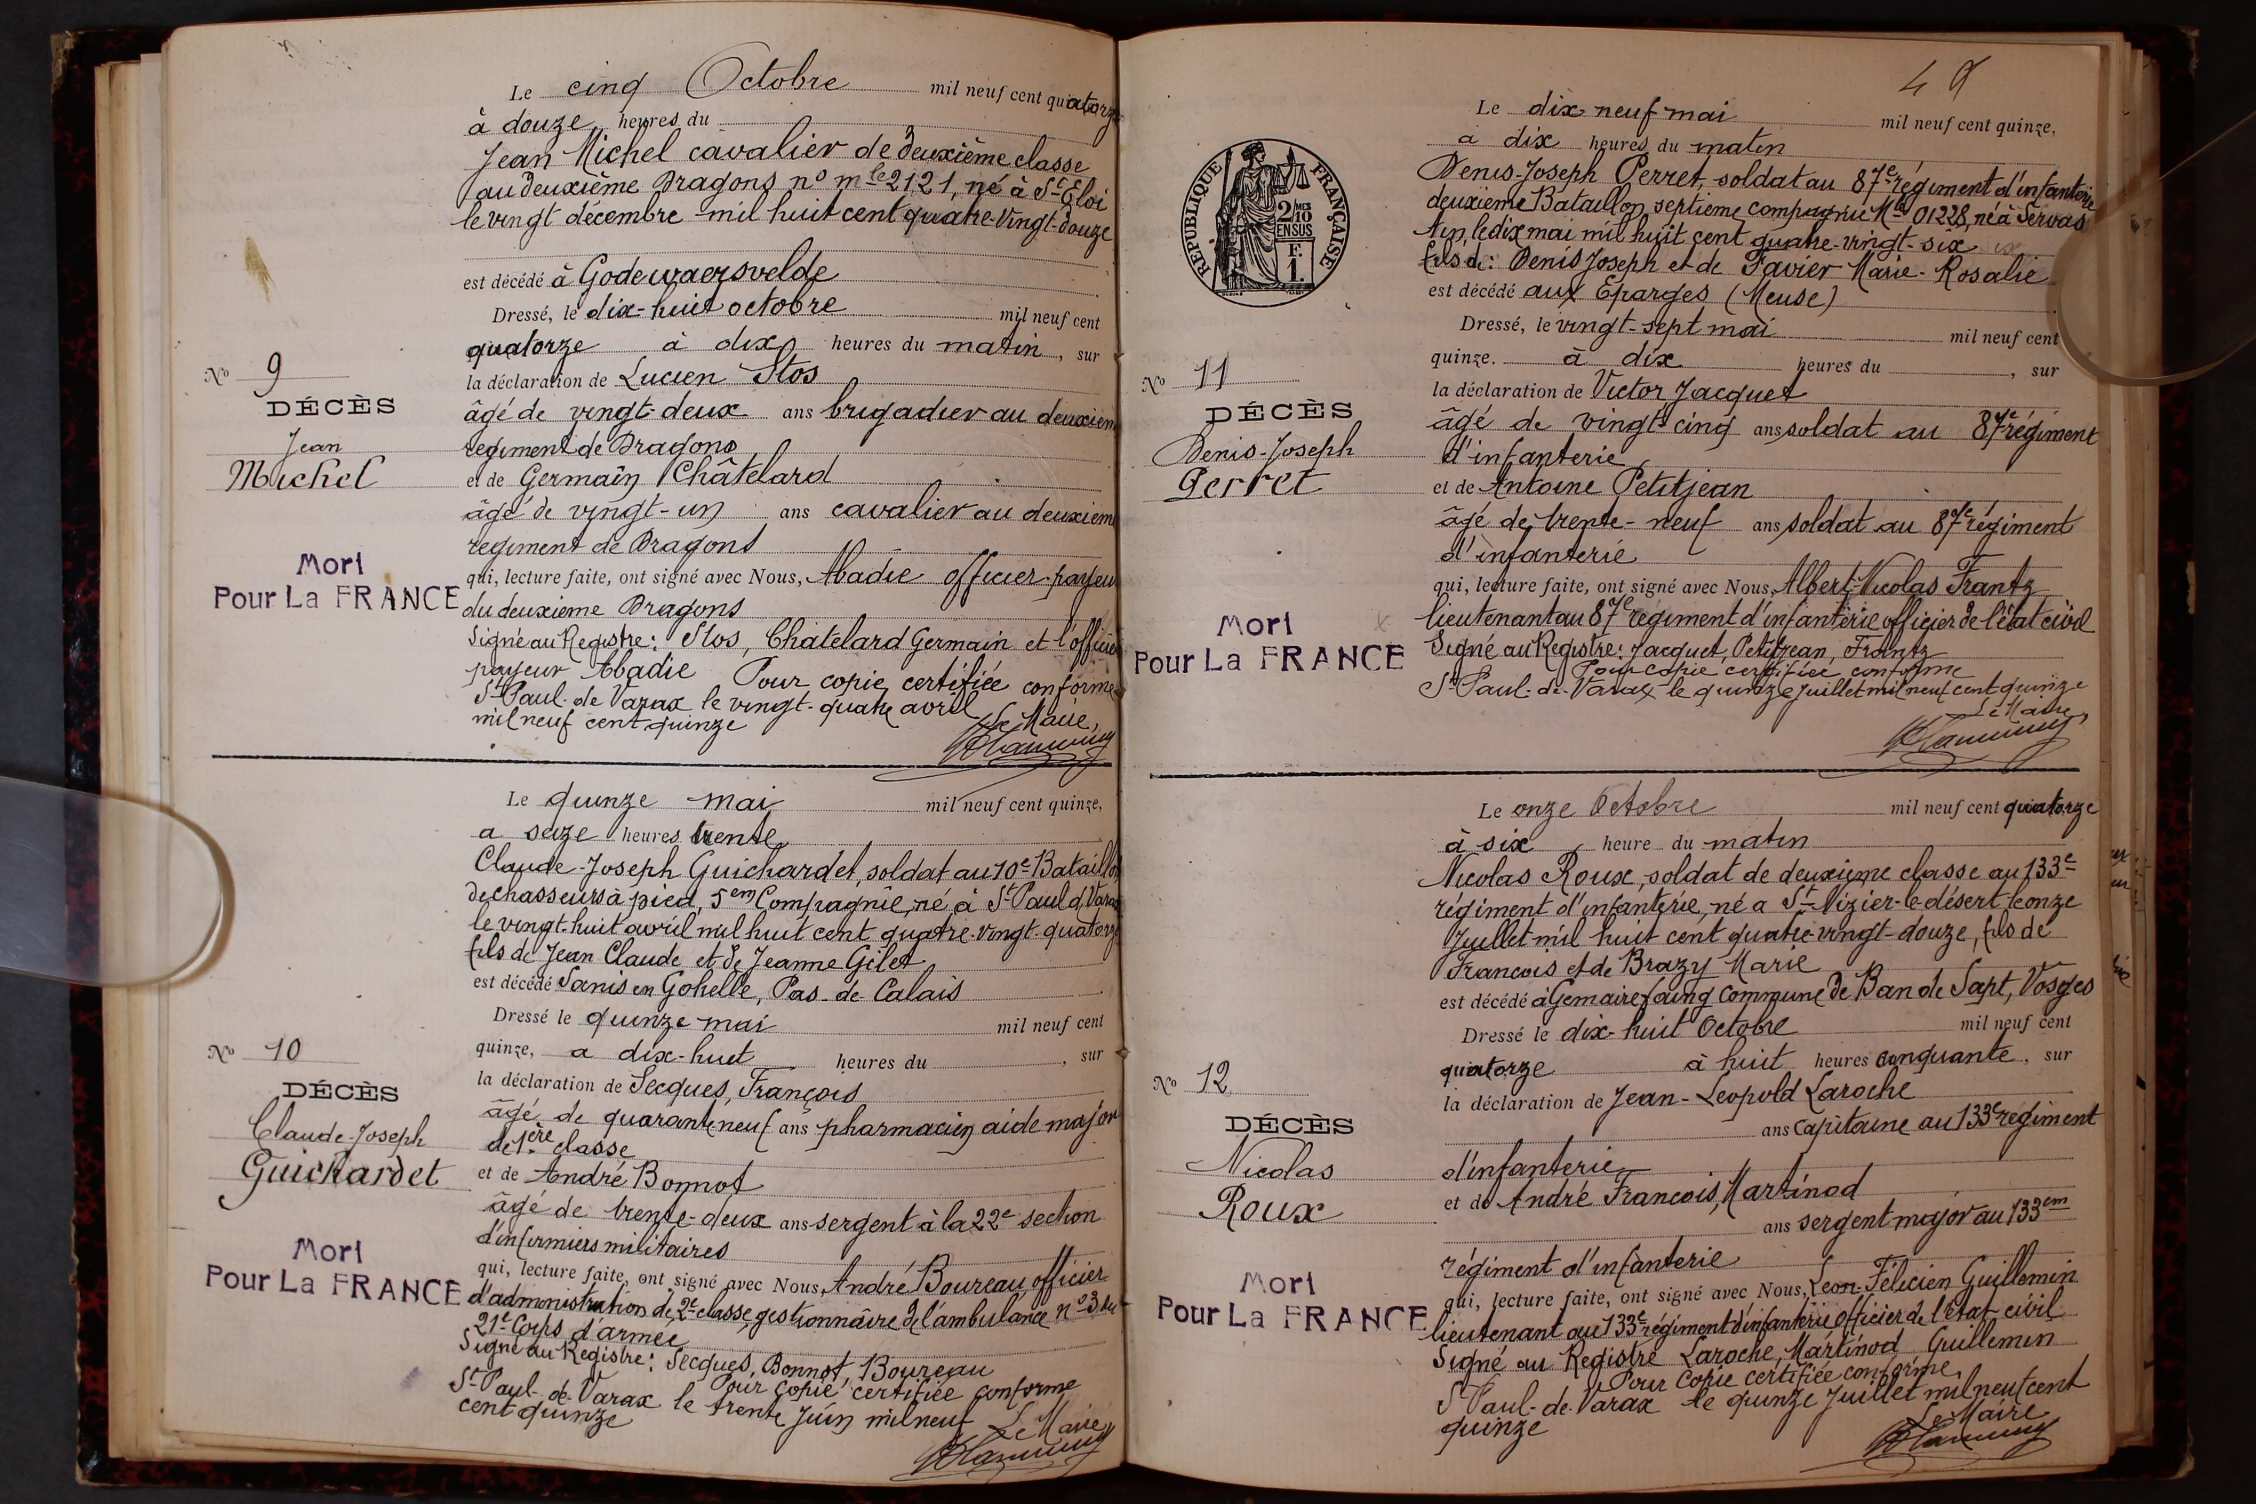 Le cinq Octobre mil neuf cent quatorze
à douze heures du
Jean Michel cavalier de deuxième classe
au deuxième Dragons no mle 2121, né à St Eloi
le vingt décembre mil huit cent quatre-vingt-douze
est décédé à Godewaersvelde
Dressé, le dix-huit octobre mil neuf cent
quatorze à dix heures du matin, sur
la déclaration de Lucien Stos
âgé de vingt-deux ans brigadier au deuxieme
regiment de Dragons
et de Germain Châtelard
âgé de vingt-un ans cavalier au deuxieme
regiment de Dragons
qui, lecture faite, ont signé avec Nous, Abadie officier-payeur
du deuxieme Dragons
Signé au Registre: Stos, Chatelard Germain et l'officier
payeur Abadie Pour copie certifiée conforme
St Paul-de Varax le vingt-quatre avril
mil neuf cent quinze Le Maire,
No 9
DÉCÈS
Jean
Michel
Mort
Pour La FRANCE
Le quinze mai mil neuf cent quinze,
a seize heures trente
Claude-Joseph Guichardet, soldat au 10e Bataillon
de chasseurs à pied, 5em Compagnie, né à St Paul d Varax
le vingt-huit avril mil huit cent quatre-vingt-quatorze
fils de Jean Claude et de Jeanne Gilet
est décédé Sanis en Gohelle, Pas-de Calais
Dressé le quinze mai mil neuf cent
quinze, a dix-huit heures du , sur
la déclaration de Secques, François
âgé de quarante neuf ans pharmacien aide major
de 1ère classe
et de André Bonnot
âgé de trente-deux ans sergent à la 22e section
d'infirmiers militaires
qui, lecture faite, ont signé avec Nous, André Boureau, officier
d'administration de 2e classe, gestionnaire de l'ambulance no 3 du
21e Corps d'armée
Signé au Registre: Secques, Bonnot, Boureau
Pour copie certifiée conforme
St Paul-de-Varax le trente Juin mil neuf
cent quinze Le Maire
No 10
DÉCÈS
Claude-Joseph
Guichardet
Mort
Pour La FRANCE
REPUBLIQUE FRANÇAISE
2 MES
10
EN SUS
F.
1.
Le dix neuf mai mil neuf cent quinze,
à dix heures du matin
Denis-Joseph Perret, soldat au 87e régiment d'infanterie
deuxième Bataillon septieme compagnie Mle 01228, né à Servas
Ain, le dix mai mil huit cent quatre-vingt-six
fils de: Denis Joseph et de Favier Marie-Rosalie
est décédé aux Eparges (Meuse)
Dressé, le vingt-sept mai mil neuf cent
quinze. à dix heures du , sur
la déclaration de Victor Jacquet
âgé de vingt-cinq ans soldat au 87e régiment
d'infanterie
et de Antoine Petitjean
âgé de trente-neuf ans soldat au 87e régiment
d'infanterie
qui, lecture faite, ont signé avec Nous, Albert-Nicolas Frantz
lieutenant au 87e regiment d'infanterie officier de l'état civil
Signé au Registre: Jacquet, Petitjean, Frantz
Pour copie certifiée conforme
St Paul-de-Varax le quinze Juillet mil neuf cent quinze
Le Maire,
No 11
DÉCÈS
Denis-Joseph
Perret
Mort
Pour La FRANCE
Le onze Octobre mil neuf cent quatorze
à six heure du matin
Nicolas Roux, soldat de deuxieme classe au 133e
régiment d'infanterie, né a St Nizier-le-désert le onze
Juillet mil huit cent quatre vingt-douze, fils de
Francois et de Brazy Marie
est décédé à Gemairefaing Commune de Ban de Sapt, Vosges
Dressé le dix-huit Octobre mil neuf cent
quatorze à huit heures cinquante, sur
la déclaration de Jean-Leopold Laroche
ans Capitaine au 133e regiment
d'infanterie
et de André Francois, Martinod
ans sergent major au 133em
régiment d'infanterie
qui, lecture faite, ont signé avec Nous, Leon-Félicien Guillemin
lieutenant au 133e régiment d'infanterie officier de l'etat civil
Signé au Registre Laroche, Martinod Guillemin
Pour Copie certifiée conforme,
St Paul-de-Varax le quinze Juillet mil neuf cent
quinze Le Maire
No 12
DÉCÈS
Nicolas
Roux
Mort
Pour La FRANCE